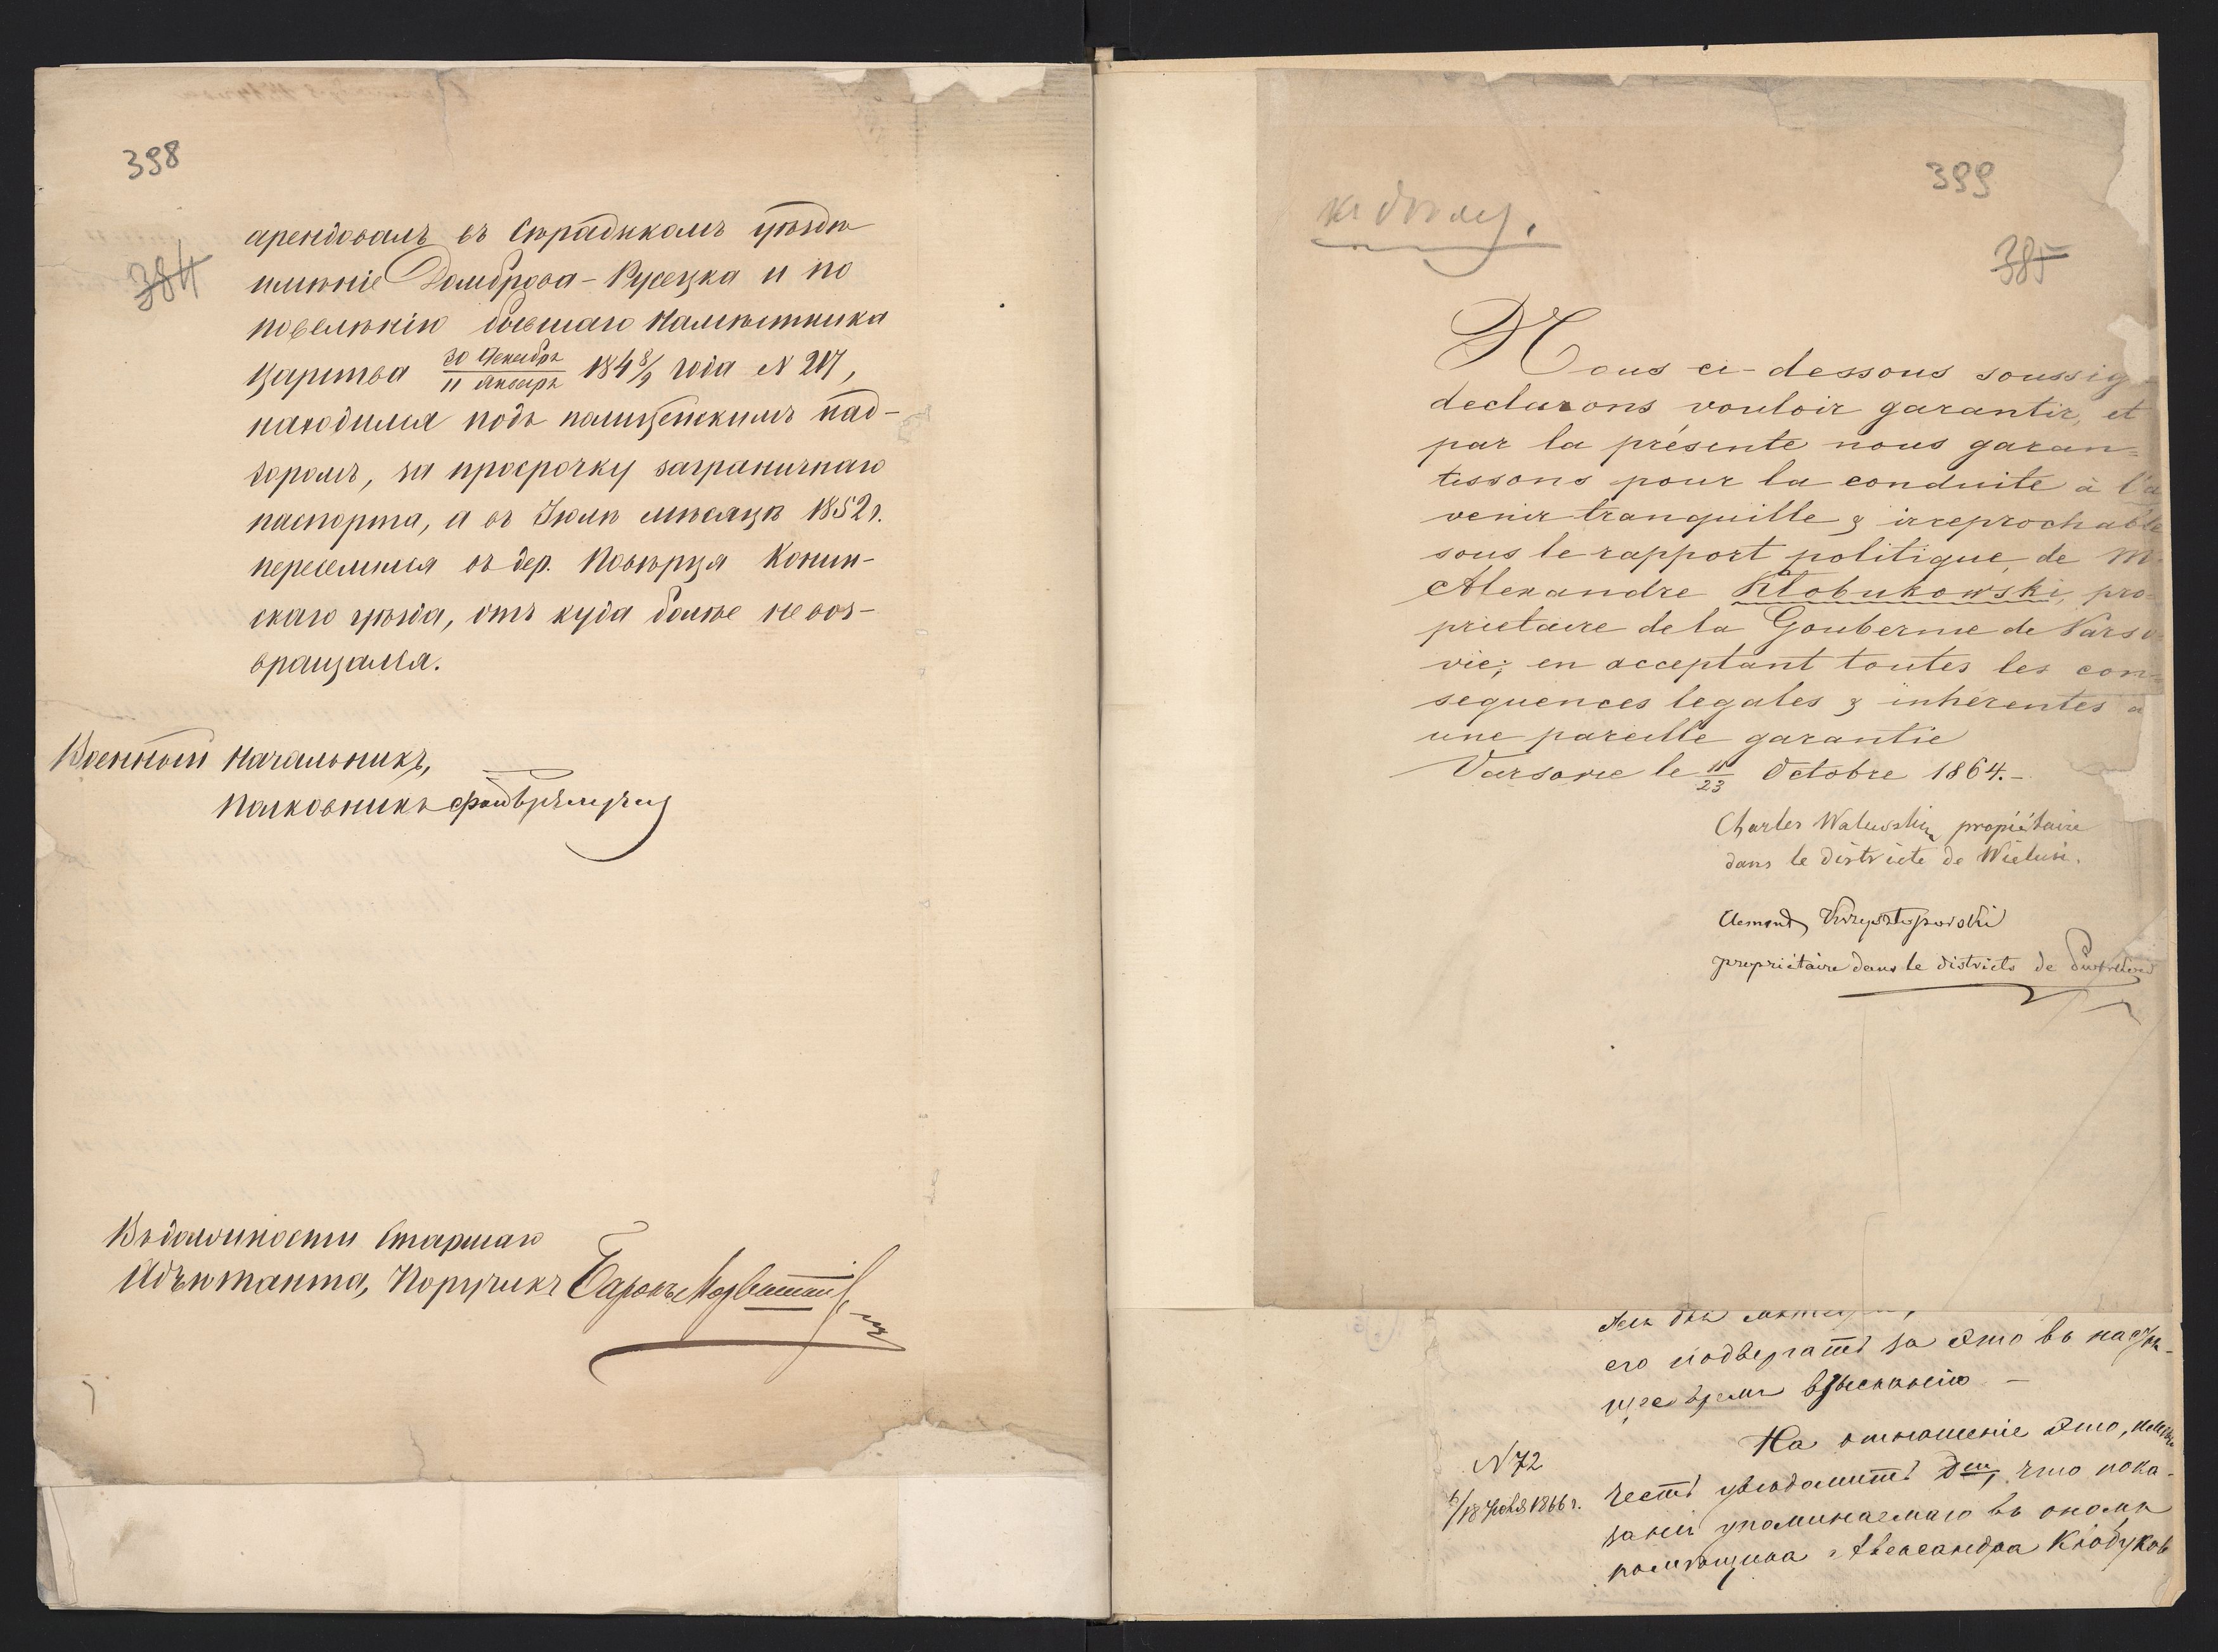 398
384
арендовалъ въ Сѣрадзкомъ уѣздѣ
имѣніе Домброва-Русецка и по
повелѣнію бывшаго Намѣстника
Царства 30 Декабря / 11 Января 184 8/9 года N 217,
находился подъ полицейскимъ над-
зоромъ, за просрочку заграничнаго
паспорта, а въ Іюлѣ мѣсяцѣ 1852 г.
переселился въ дер. Конин-
скаго уѣзда, отъ куда болѣе не воз-
вращался.
Военный Начальникъ,
Полковникъ
Въ должности Старшаго
Адъютанта, Поручикъ Баронъ
399
385
Nous ci-dessous soussig
declarons vouloir garantir, et
par la présente nous garan=
tissons pour la conduite à l'a
venir tranquille & irreprochable
sous le rapport politique de M.
Alexandre Kłobukowski, pro=
prietaire de la Goubernie de Varso=
vie; en acceptant toutes les con=
sequences legales & inhérentes à
une pareille garantie
Varsovie le 11/23 Octobre 1864.-
Charles Walewski, propiétaire
dans le districte de Wieluń.
propriétaire dans le districte de
его подвергать за это въ насто-
щее время взысканію -
На отношеніе это,
N 72
6/18 1866 г.
честь увѣдомить что пока-
заній упоминаемаго въ ономъ
помѣщика Александра Клобуков